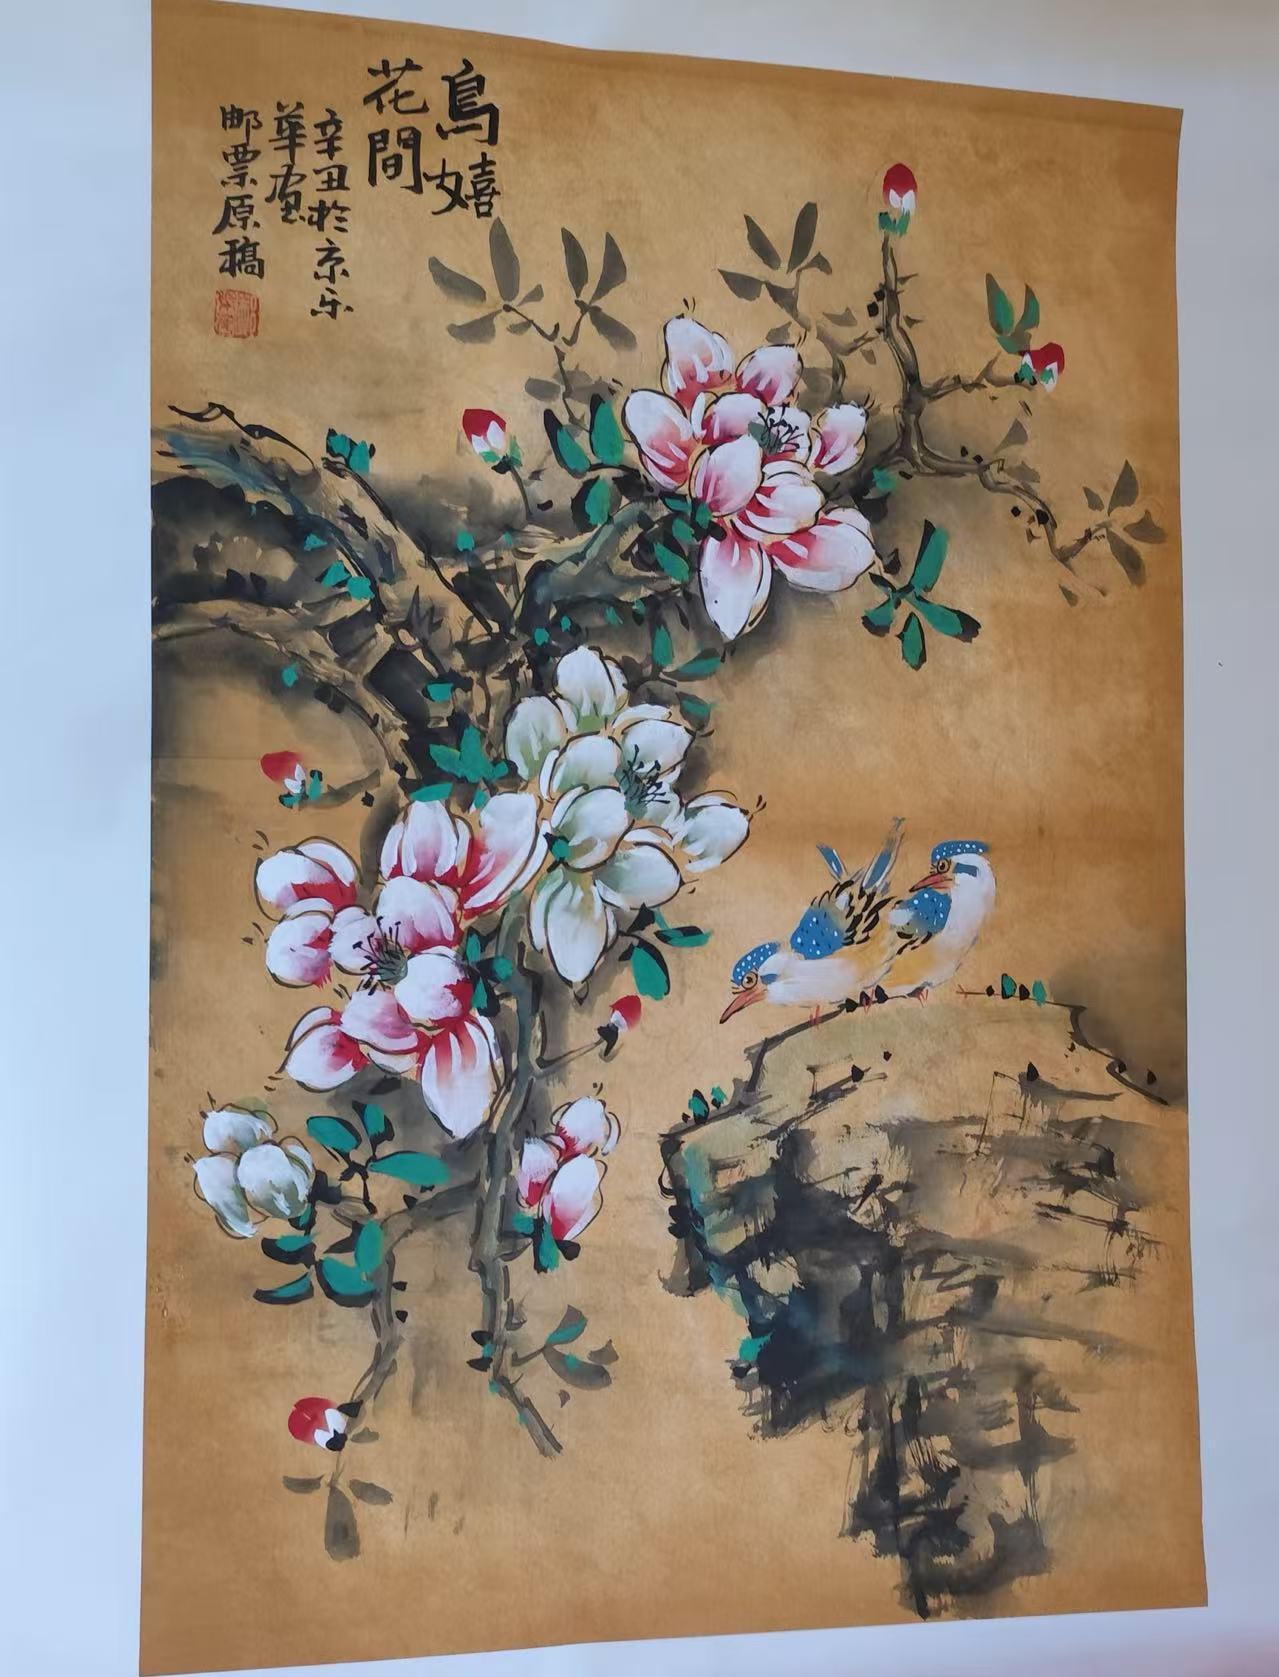 鳥嬉
花間
辛丑於京乐
華画
邮票原稿